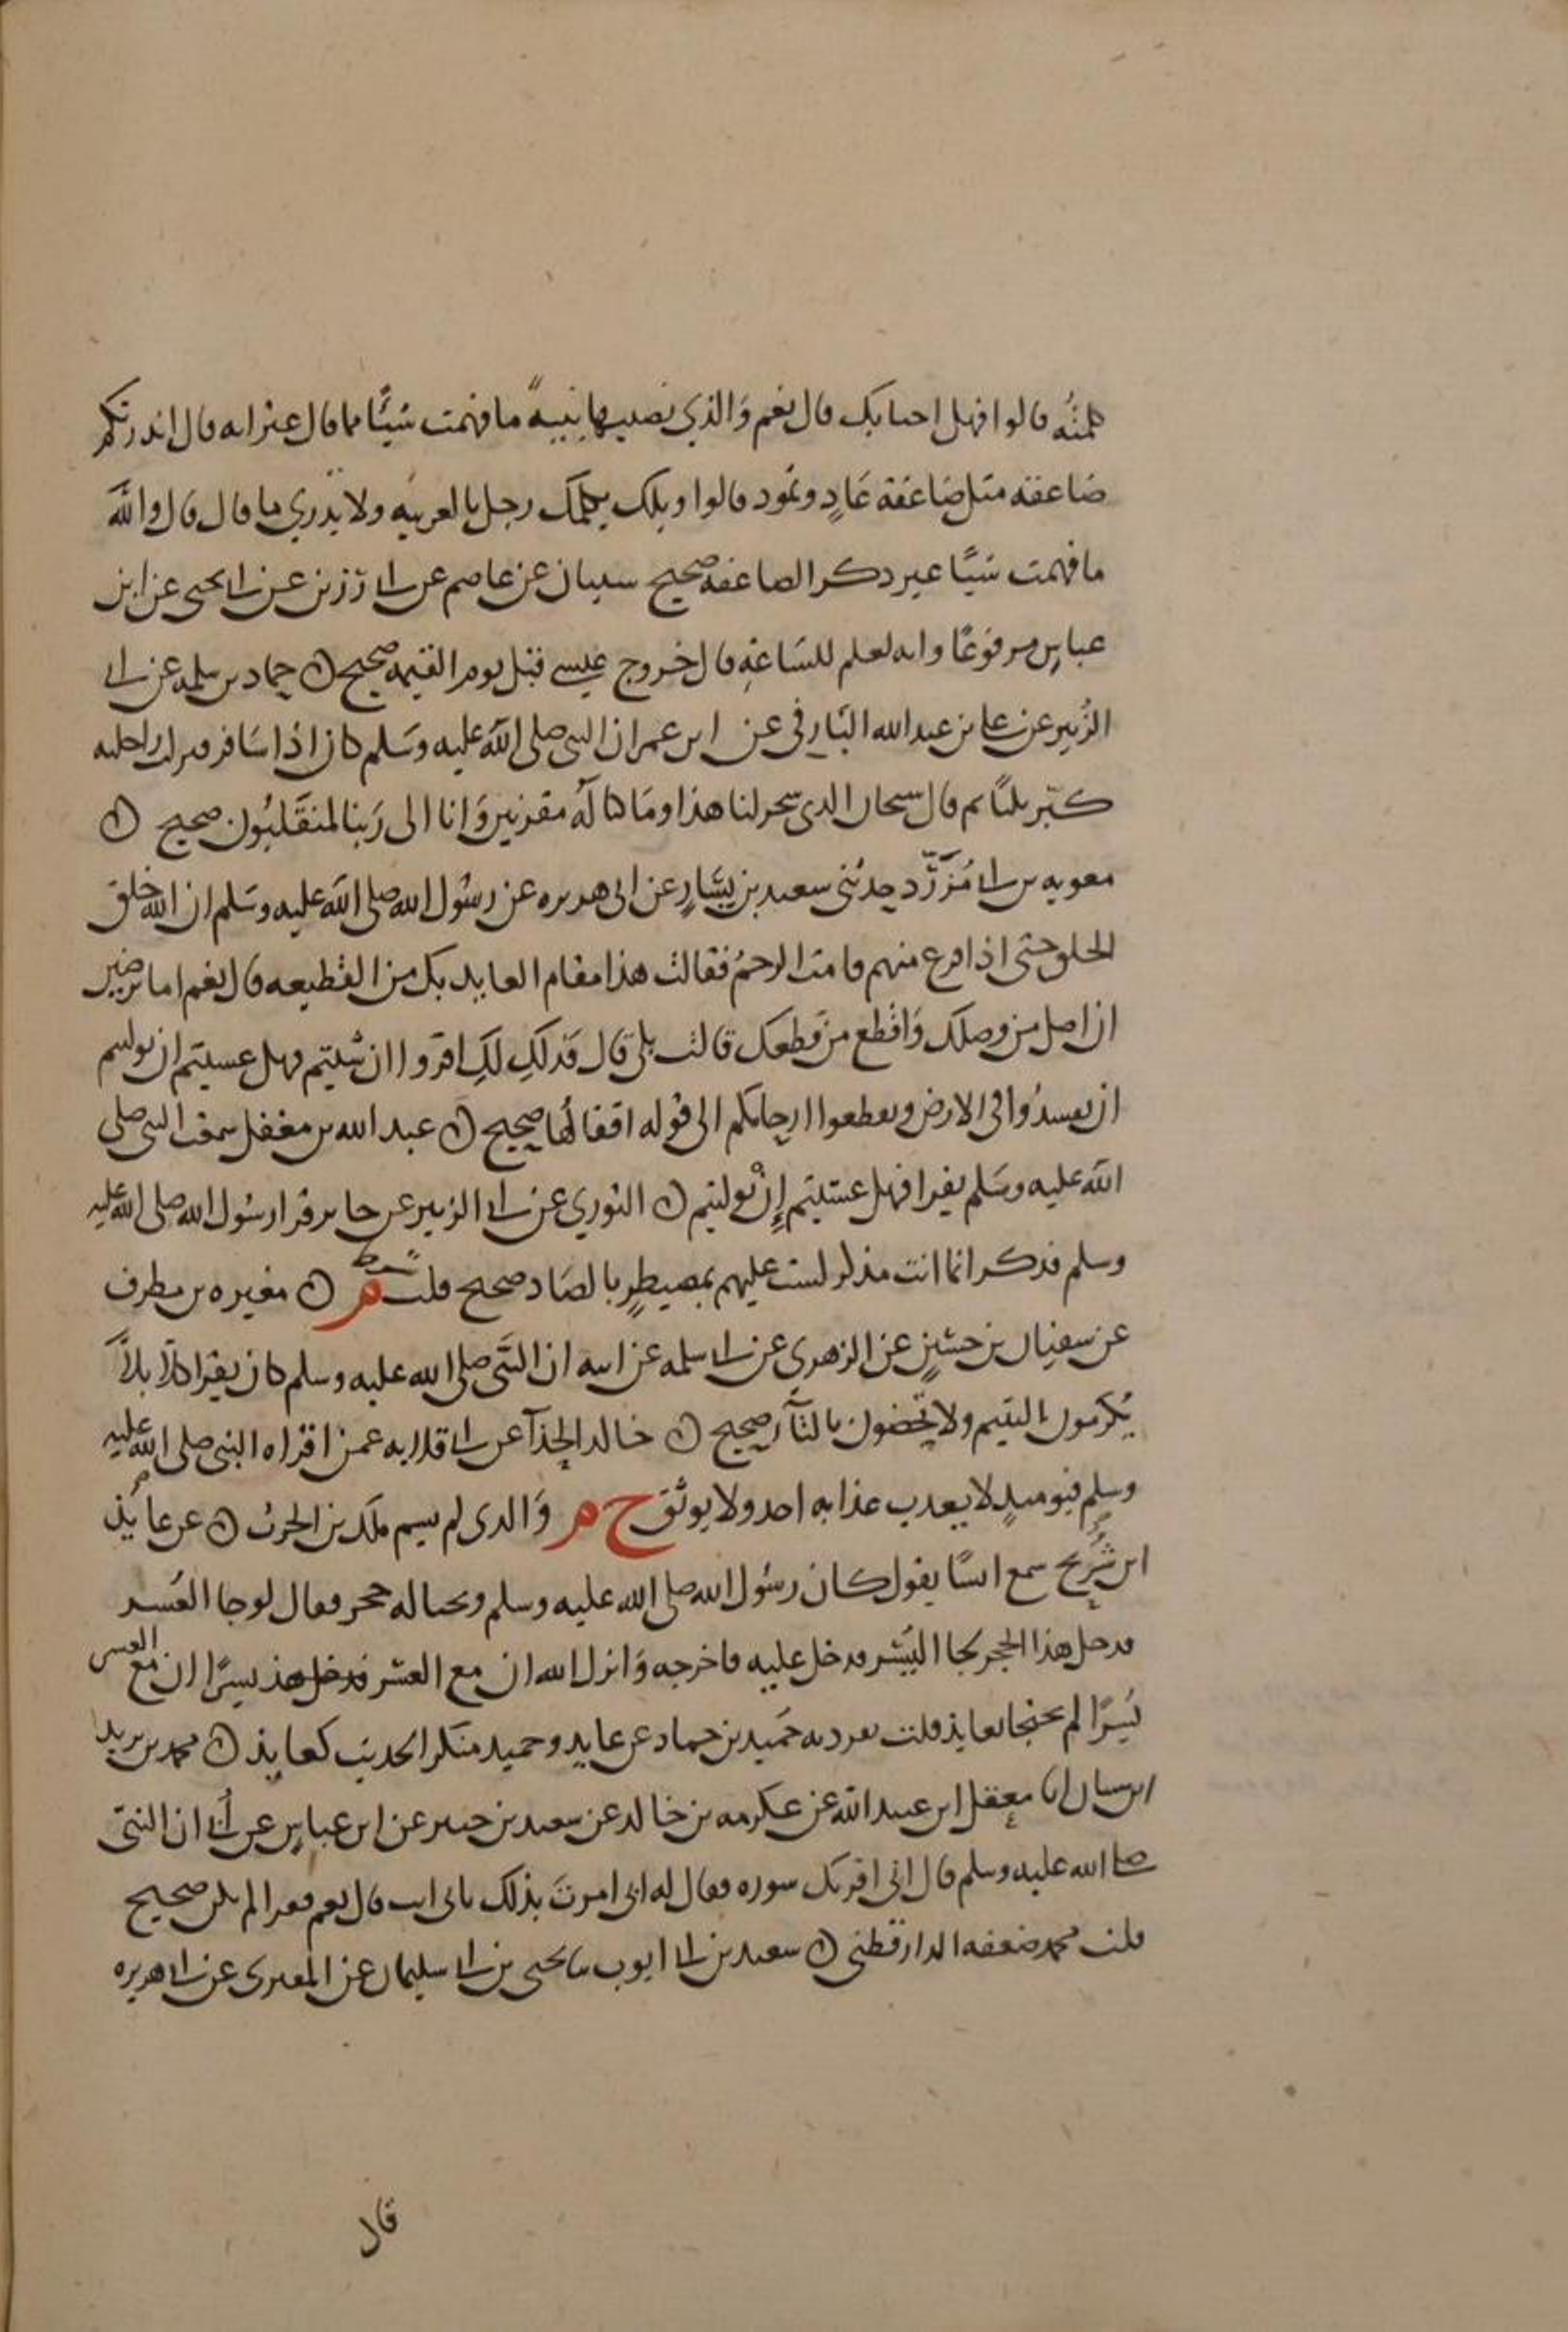 كلمته قالوا فهل اجابك قال نعم والذي نصبها بنية ما فهمت شيئا مما قال غير انه قال انذرتكم
صاعقه مثل صاعقة عاد وثمود قالوا ويلك يكلمك رجل بالعربيه ولا تدري ما قال قال والله
ما فهمت شيئا غير ذكر الصاعقه صحيح سفيان عن عاصم عن ابي رزين عن ابي يحيى عن ابن
عباس مرفوعا وانه لعلم للساعة قال خروج عيسى قبل يوم القيمه صحيح ن حماد بن سلمه عن ابي
الزبير عن علي بن عبد الله البارقي عن ابن عمر ان النبي صلى الله عليه وسلم كان اذا سافر فركب راحلته
كبر ثلثا ثم قال سبحان الذي سخر لنا هذا وما كنا له مقرنين وانا الى ربنا لمنقلبون صحيح ن
معويه بن ابي مزرد حدثني سعيد بن يسار عن ابي هريره عن رسول الله صلى الله عليه وسلم ان الله خلق
الخلق حتى اذا فرغ منهم قامت الرحم فقالت هذا مقام العايذ بك من القطيعه قال نعم اما ترضين
ان اصل من وصلك واقطع من قطعك قالت بلى قال فذلك لك اقروا ان شيتم فهل عسيتم ان توليتم
ان تفسدوا في الارض وتقطعوا ارحامكم الى قوله اقفالها صحيح ن عبد الله بن مغفل سمعت النبي صلى
الله عليه وسلم يقرا فهل عسيتم إن توليتم ن الثوري عن ابي الزبير عن جابر قرا رسول الله صلى الله عليه
وسلم فذكر انما انت مذكر لست عليهم بمصيطر بالصاد صحيح قلت م ن مغيره بن مطرف
عن سفيان بن حسين عن الزهري عن ابي سلمه عن ابيه ان النبي صلى الله عليه وسلم كان يقرا كلا بل لا
يكرمون اليتيم ولا يحضون بالتآ صحيح ن خالد الحذآ عن ابي قلابه عمن اقراه النبي صلى الله عليه
وسلم فيوميذ لا يعذب عذابه احد ولا يوثق خ م والذي لم يسم ملك بن الحرث ن عن عايذ
ابن شريح سمع انسا يقول كان رسول الله صلى الله عليه وسلم وبحياله جحر فقال لو جا العسر
فدخل هذا الجحر لجا اليسر فدخل عليه فاخرجه وانزل الله ان مع العسر يسرا ان مع العسر
يسرا لم يحتجا بعايذ قلت تفرد به حميد بن حماد عن عايذ وحميد منكر الحديث كعايذ ن محمد بن يزيد
ابن سنان انا معقل ابن عبيد الله عن عكرمه بن خالد عن سعيد بن جبير عن ابن عباس عن أبي ان النبي
صلى الله عليه وسلم قال اني اقريك سوره فقال له ابي امرت بذلك بابي انت قال نعم فقرا لم يكن صحيح
قلت محمد ضعفه الدارقطني ن سعيد بن ابي ايوب نا يحيى بن ابي سليمان عن المقبري عن ابي هريره
قال